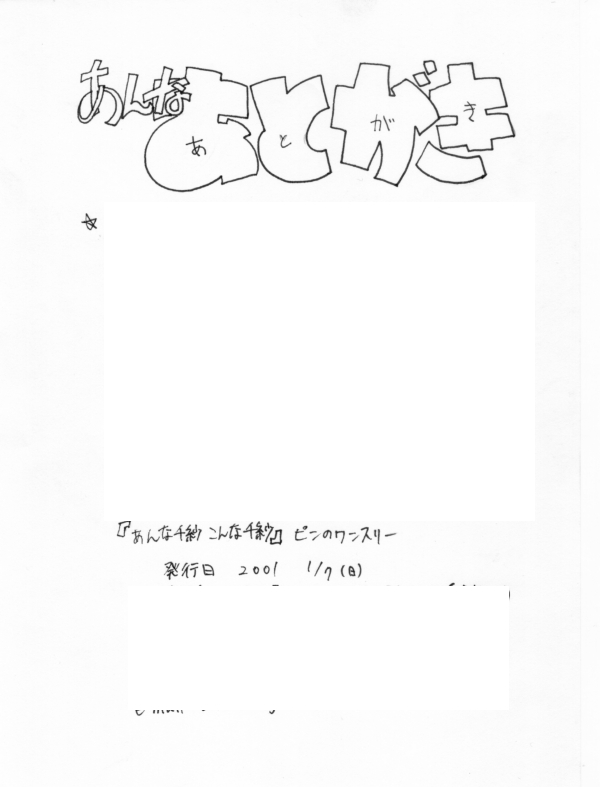 あんな あとがき
あとがき
☆
『あんな千紗 こんな千紗』 ピンのワンスリー
発行日 2001 1/7(日)